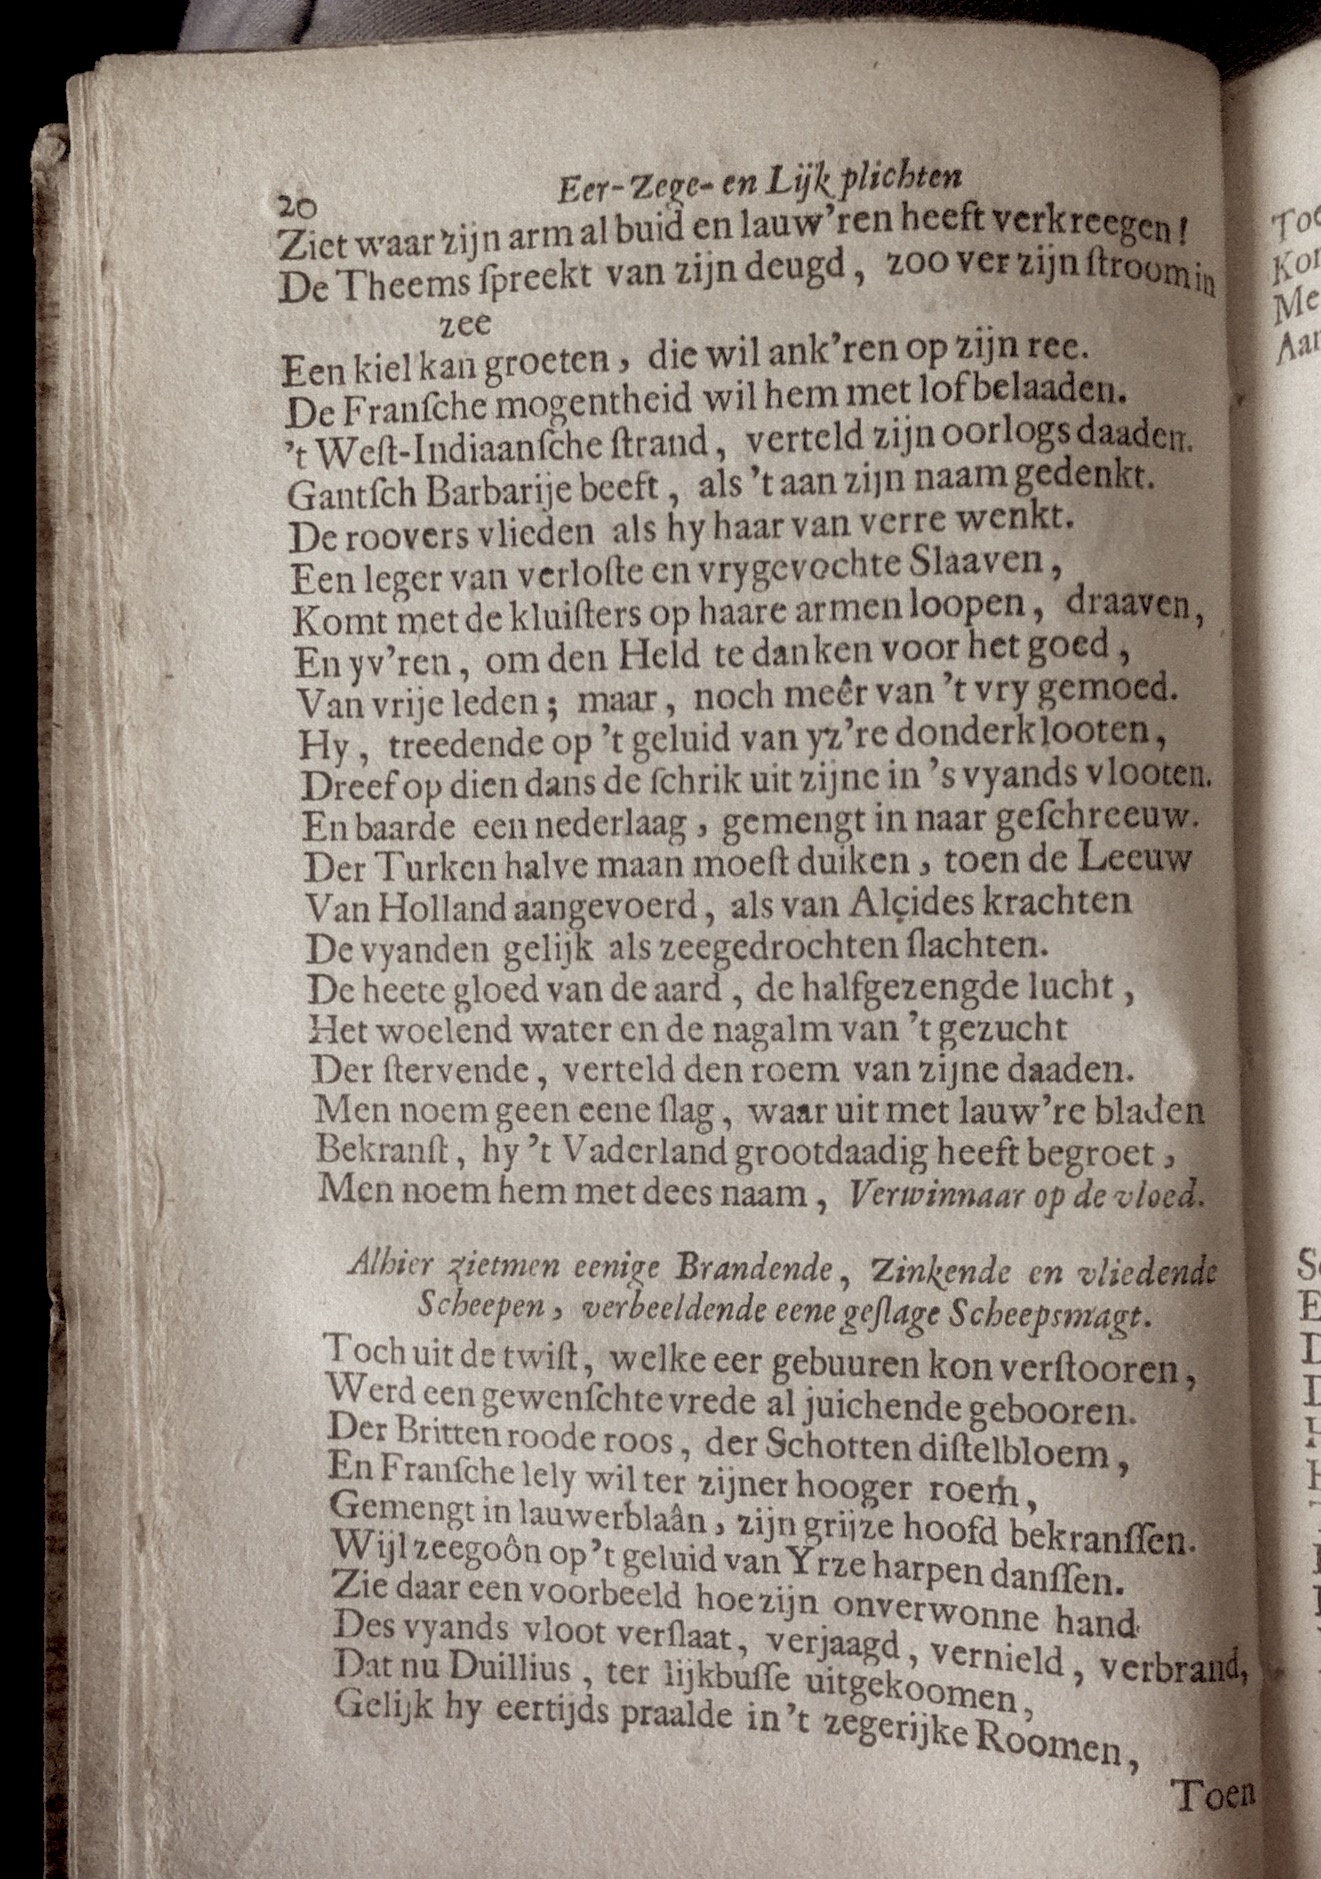 20 Eer-Zege- en Lijkplichten
Ziet waar zijn arm al buid en lauw'ren heeft verkreegen!
De Theems ſpreekt van zijn deugd, zoo ver zijn ſtroom in
zee
Een kiel kan groeten, die wil ank'ren op zijn ree.
De Franſche mogentheid wil hem met lof belaaden.
't Weſt-Indiaanſche ſtrand, verteld zijn oorlogs daaden.
Gantſch Barbarije beeft, als 't aan zijn naam gedenkt.
De roovers vlieden als hy haar van verre wenkt.
Een leger van verloſte en vrygevochte Slaaven,
Komt met de kluiſters op haare armen loopen, draaven,
En yv'ren, om den Held te danken voor het goed,
Van vrije leden; maar, noch meêr van 't vry gemoed.
Hy, treedende op 't geluid van yz're donderklooten,
Dreef op dien dans de ſchrik uit zijne in 's vyands vlooten.
En baarde een nederlaag, gemengt in naar geſchreeuw.
Der Turken halve maan moeſt duiken, toen de Leeuw
Van Holland aangevoerd, als van Alçides krachten
De vyanden gelijk als zeegedrochten ſlachten.
De heete gloed van de aard, de halfgezengde lucht,
Het woelend water en de nagalm van 't gezucht
Der ſtervende, verteld den roem van zijne daaden.
Men noem geen eene ſlag, waar uit met lauw're bladen
Bekranſt, hy 't Vaderland grootdaadig heeft begroet,
Men noem hem met dees naam, Verwinnaar op de vloed.
Alhier zietmen eenige Brandende, Zinkende en vliedende
Scheepen, verbeeldende eene geſlage Scheepsmagt.
Toch uit de twiſt, welke eer gebuuren kon verſtooren,
Werd een gewenſchte vrede al juichende gebooren.
Der Britten roode roos, der Schotten diſtelbloem,
En Franſche lely wil ter zijner hooger roem,
Gemengt in lauwerblaân, zijn grijze hoofd bekranſſen.
Wijl zeegoôn op 't geluid van Yrze harpen danſſen.
Zie daar een voorbeeld hoe zijn onverwonne hand
Des vyands vloot verſlaat, verjaagd, vernield, verbrand,
Dat nu Duillius, ter lijkbuſſe uitgekoomen,
Gelijk hy eertijds praalde in 't zegerijke Roomen,
Toen